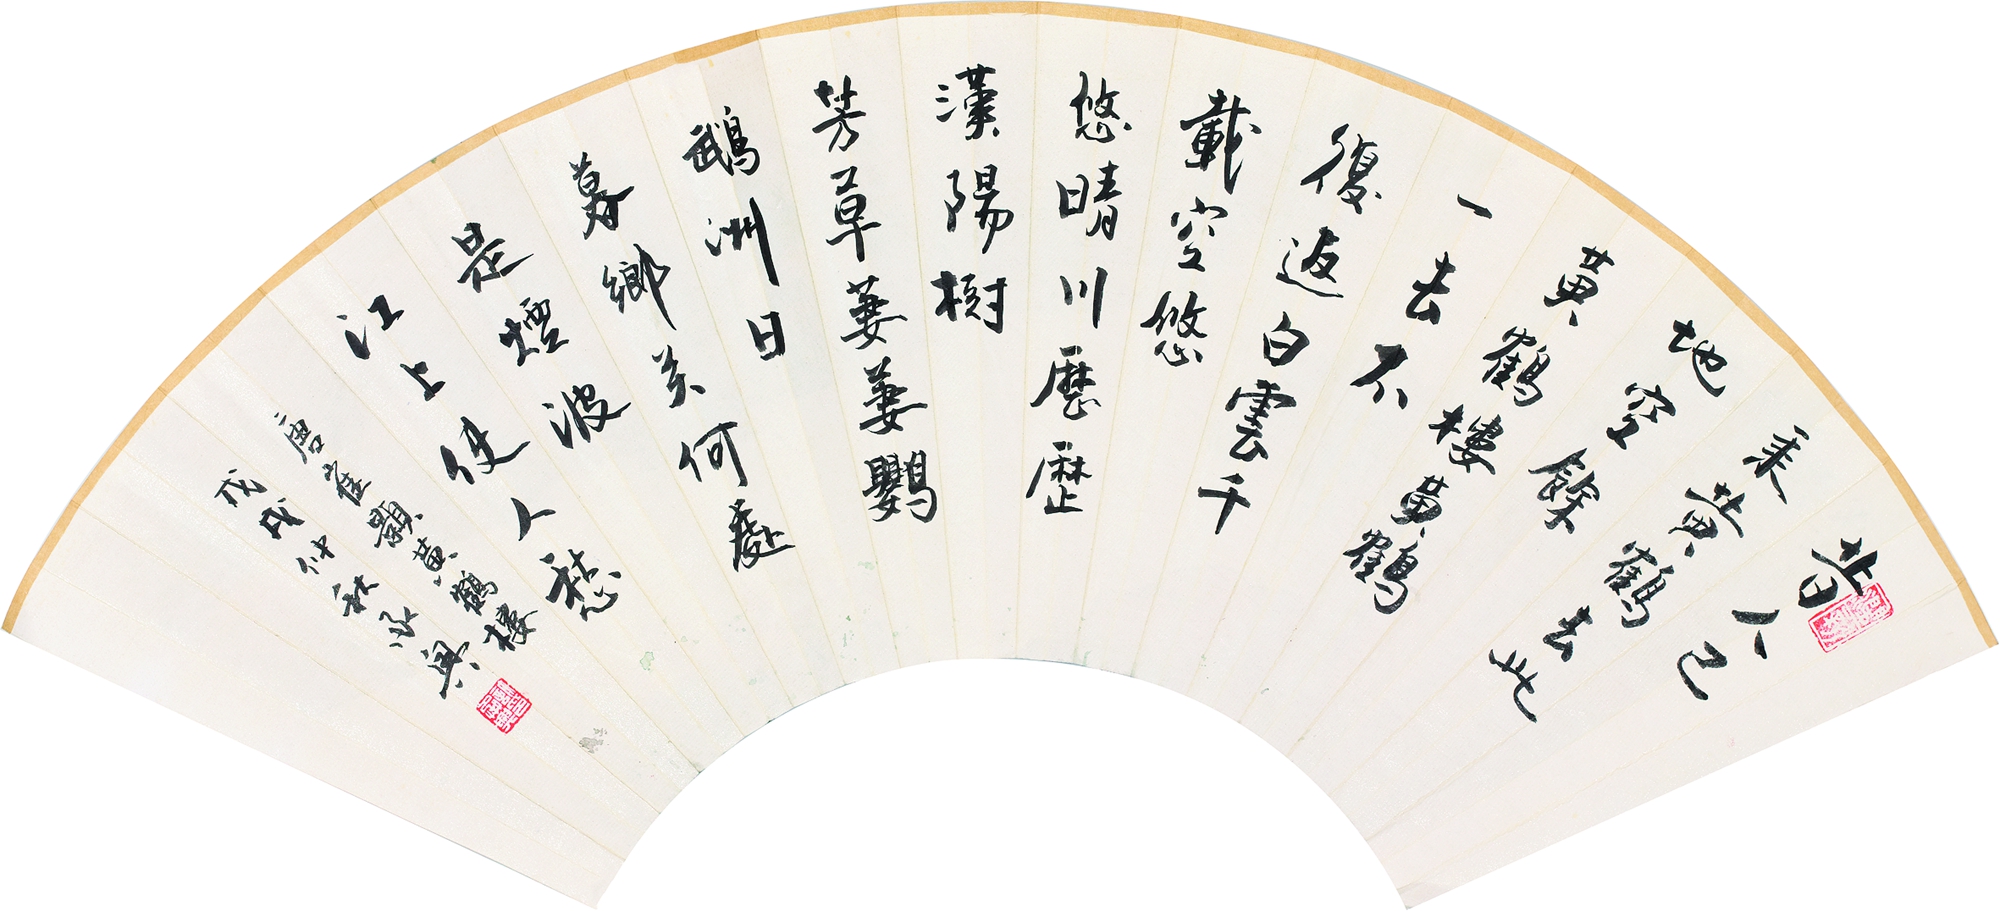 昔人已
乘黃鶴去此
地空餘
黃鶴樓黃鶴
一去不
復返白雲千
載空悠
悠晴川歷歷
漢陽樹
芳草萋萋鸚
鵡洲日
暮鄉关何處
是煙波
江上使人愁
唐崔顥黃鶴樓
戊戌仲秋